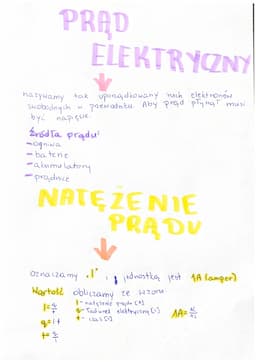 PRĄD
ELEKTRYCZNY
nazywamy tak uporządkowany ruch elektronów
swobodnych w przewodniku. Aby prąd płynął musi
być napięcie.
źródła prądu:
- ogniwa
- baterie
- akumulatory
- prądnice
NATĘŻENIE
PRĄDU
oznaczamy „I", jednostką jest 1A (amper)
Wartość obliczamy ze wzoru:
I = q/t
q = I·t
t = q/I
I - natężenie prądu [A]
q - ładunek elektryczny [C]
t - czas [s]
1A =